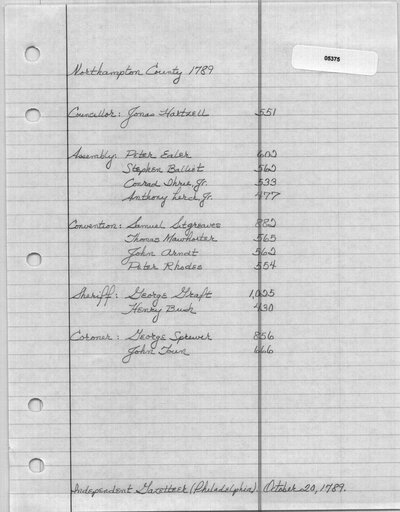 05375
Northampton County 1789
Councillor: Jonas Hartzell 551
Assembly: Peter Ealer 602
Stephen Balliet 562
Conrad Ihrie, Jr. 533
Anthony Lerch, Jr. 477
Convention: Samuel Sitgreaves 882
Thomas Mawhorter 565
John Arndt 562
Peter Rhodes 554
Sheriff: George Graft 1,025
Henry Bush 430
Coroner: George Sprewer 856
John Toun 666
Independent Gazetteer (Philadelphia). October 20, 1789.